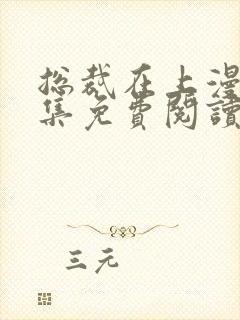 总裁在上漫
集免費閱讀
三元